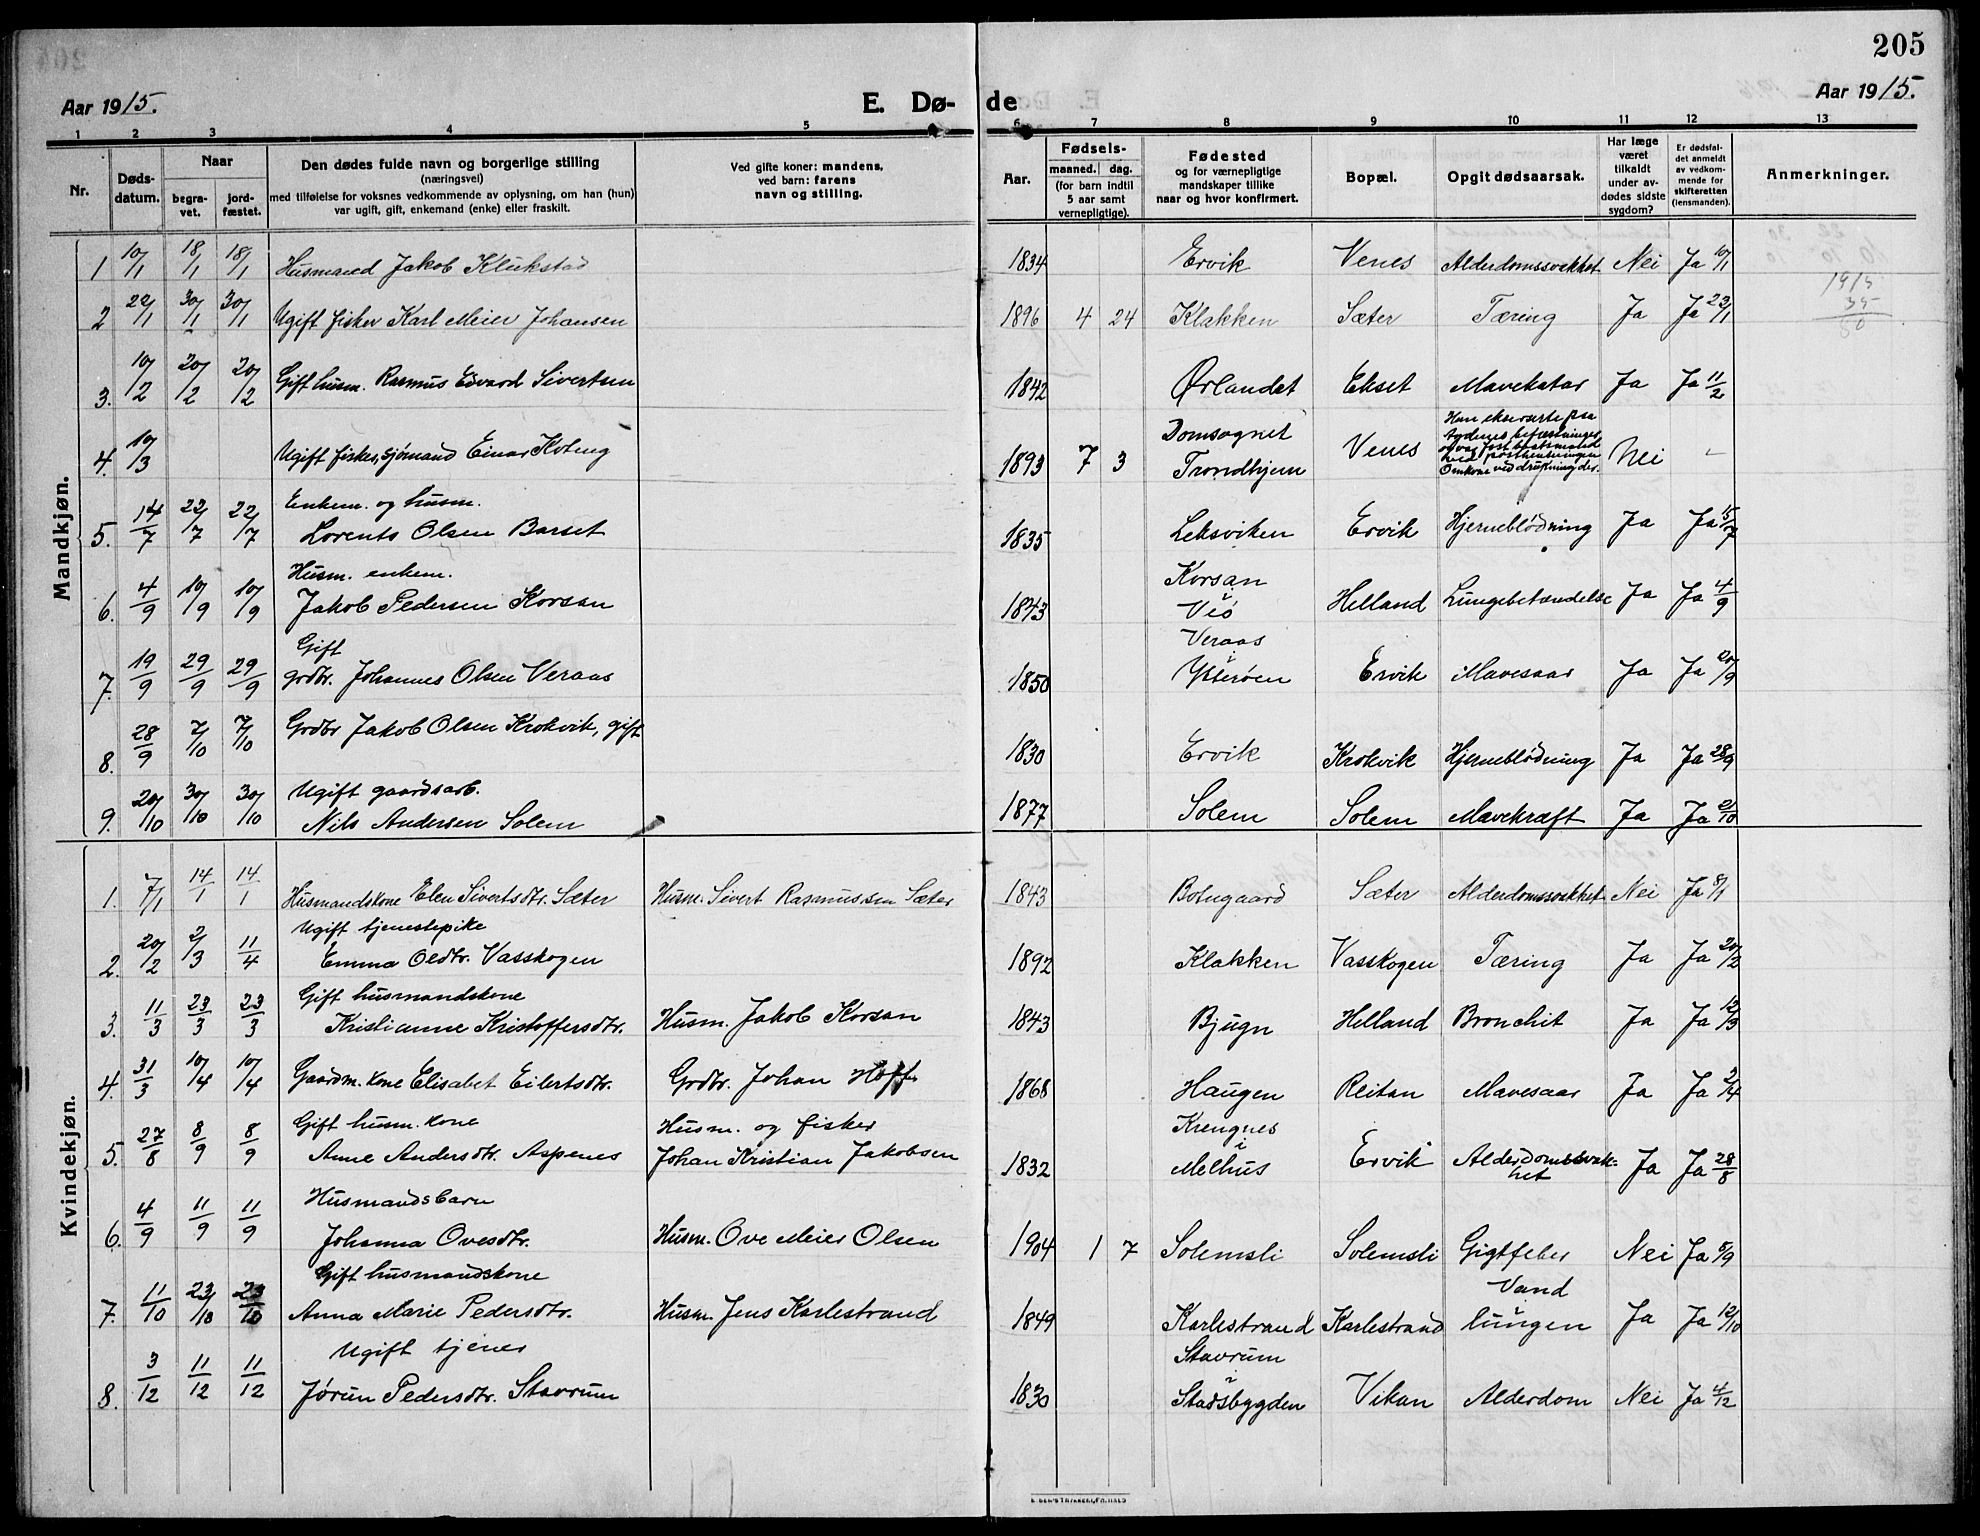 205
Aar 1915.
E. Dø-
de
Aar 1915.
1 2 3 4 5 6 7 8 9 10 11 12 13
Nr.
Døds-
datum.
Naar
begra-
vet.
jord-
fæstet.
Den dødes fulde navn og borgerlige stilling
(næringsvei)
med tilføielse for voksnes vedkommende av oplysning, om han (hun)
var ugift, gift, enkemand (enke) eller fraskilt.
Ved gifte koner: mandens,
ved barn: farens
navn og stilling.
Fødsels-
Aar.
maaned. dag.
(for barn indtil
5 aar samt
vernepligtige).
Fødested
og for værnepligtige
mandskaper tillike
naar og hvor konfirmert.
Bopæl.
Opgit dødsaarsak.
Har læge
været
tilkaldt
under av-
dødes sidste
sygdom?
Er dødsfal-
det anmeldt
av vedkom-
mende for
skifteretten
(lensmanden).
Anmerkninger.
Mandkjøn.
1 10/1 18/1 18/1 Husmand Jakob Klukstad 1834 Ervik Venes Alderdomssvakhet Nei Ja 10/1
1915
2 22/1 30/1 30/1 Ugift fisker Karl Meier Johansen 1896 4 24 Klakken Sæter Tæring Ja Ja 23/1
3. 10/2 20/2 20/2 Gift husm. Rasmus Edvard Sivertsen 1842 Ørlandet Ekset Mavekatar Ja Ja 11/2
4. 10/3 Ugift fisker, sjømand Einar Koteng 1893 7 3 Domsognet
Trondhjem Venes Nei –
Omkom ved drukning der.
5. 14/7 22/7 22/7 Enkem. og husm.
Lorents Olsen Barset 1835 Leksviken Ervik Hjerneblødning Ja Ja 15/7
6. 4/9 10/9 10/9 Husm. enkem.
Jakob Pedersen Korsan 1843 Korsan
i
Veø Helland Lungebetændelse Ja Ja 4/9
7. 19/9 29/9 29/9 Gift
grdbr. Johannes Olsen Veraas 1850 Veraas
i
Ytterøen Ervik Mavesaar Ja Ja 20/9
8. 28/9 7/10 7/10 Grdbr Jakob Olsen Krokvik, gift 1830 Ervik Krokvik Hjerneblødning Ja Ja 28/9
9. 20/10 30/10 30/10 Ugift gaardsarb.
Nils Andersen Solem 1877 Solem Solem Mavekræft Ja Ja
Kvindekjøn.
1. 7/1 14/1 14/1 Husmandskone Elen Sivertsdtr. Sæter Husm. Sivert Rasmussen Sæter 1843 Botngaard Sæter Alderdomssvakhet Nei Ja 8/1
2. 20/2 2/3 11/4 Ugift tjenestepike
Emma Oledtr. Vasskogen 1892 Klakken Vasskogen Tæring Ja Ja 20/2
3. 11/3 23/3 23/3 Gift husmandskone
Kristianne Kristoffersdtr. Husm. Jakob Korsan 1843 Bjugn Helland Bronchit Ja Ja 12/3
4. 31/3 10/4 10/4 Gaardm. kone Elisabet Eilertsdtr. Grdbr. Johan Hoff 1868 Haugen Reitan Mavesaar Ja Ja 2/4
5. 27/8 8/9 8/9 Gift husm. kone
Anne Andersdtr. Aspenes Husm. og fisker
Johan Kristian Jakobsen 1832 Krengnes
i
Melhus Ervik Alderdomssvak-
het Ja Ja 28/8
6. 4/9 11/9 11/9 Husmandsbarn
Johanna Ovesdtr. Husm. Ove Meier Olsen 1904 1 7 Solemsli Solemsli Gigtfeber Nei Ja 5/9
7. 11/10 23/10 23/10 Gift husmandskone
Anna Marie Pedersdtr. Husm. Jens Karlestrand 1849 Karlestrand Karlestrand Vand
i
lungen Ja Ja 12/10
8. 3/12 11/12 11/12 Ugift tjener
Jørun Pedersdtr. Stavrum 1830 Stavrum
i
Stadsbygden Vikan Alderdom Nei Ja 4/12